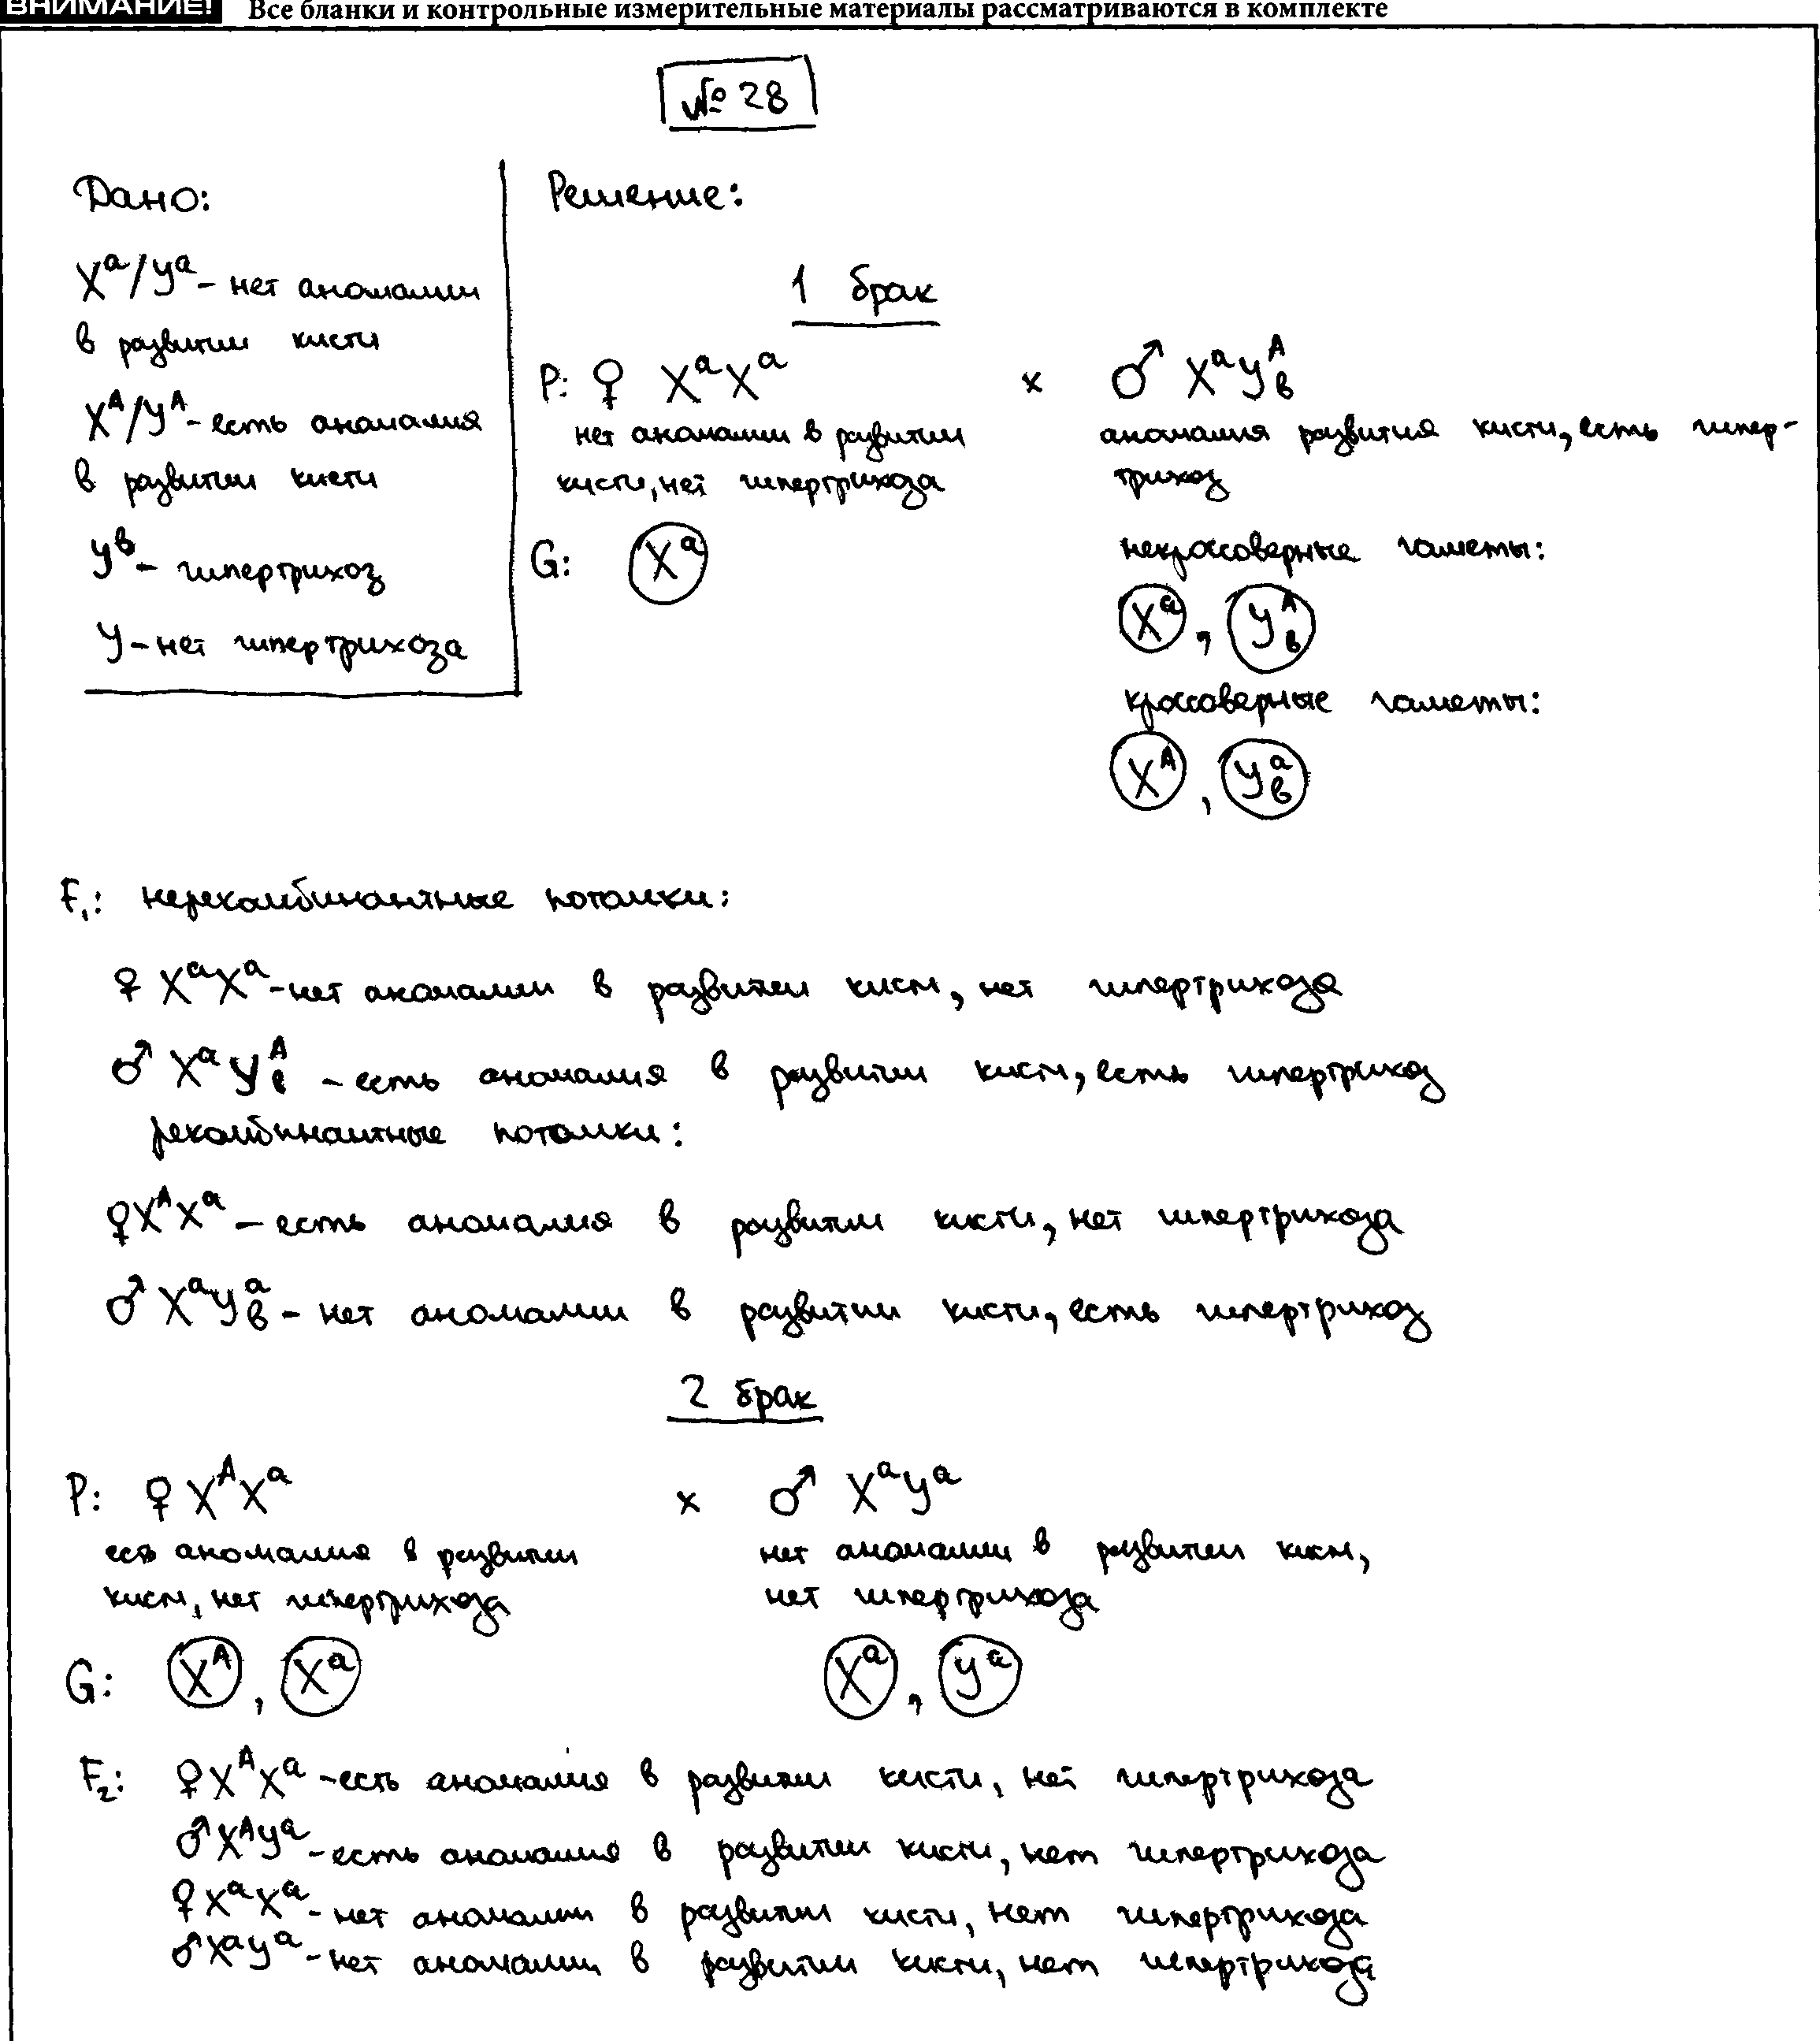 ВНИМАНИЕ! Все бланки и контрольные измерительные материалы рассматриваются в комплекте
№ 28
Дано:
Xᵃ/Yᵃ - нет аномалии
в развитии кисти
Xᴬ/Yᴬ - есть аномалия
в развитии кисти
Yᵇ - гипертрихоз
Y - нет гипертрихоза
Решение:
1 брак
P: ♀ XᵃXᵃ x ♂ XᵃYᴬв
нет аномалии в развитии
кисти, нет гипертрихоза
аномалия развития кисти, есть гипер-
трихоз
G: Xᵃ
некроссоверные гаметы:
Xᵃ, Yᴬв
кроссоверные гаметы:
Xᴬ, Yᵃв
F₁: нерекомбинантные потомки:
♀ XᵃXᵃ - нет аномалии в развитии кисти, нет гипертрихоза
♂ XᵃYᴬв - есть аномалия в развитии кисти, есть гипертрихоз
рекомбинантные потомки:
♀ XᴬXᵃ - есть аномалия в развитии кисти, нет гипертрихоза
♂ XᵃYᵃв - нет аномалии в развитии кисти, есть гипертрихоз
2 брак
P: ♀ XᴬXᵃ x ♂ XᵃYᵃ
есть аномалия в развитии
кисти, нет гипертрихоза
нет аномалии в развитии кисти,
нет гипертрихоза
G: Xᴬ, Xᵃ Xᵃ, Yᵃ
F₂: ♀ XᴬXᵃ - есть аномалия в развитии кисти, нет гипертрихоза
♂ XᴬYᵃ - есть аномалия в развитии кисти, нет гипертрихоза
♀ XᵃXᵃ - нет аномалии в развитии кисти, нет гипертрихоза
♂ XᵃYᵃ - нет аномалии в развитии кисти, нет гипертрихоза